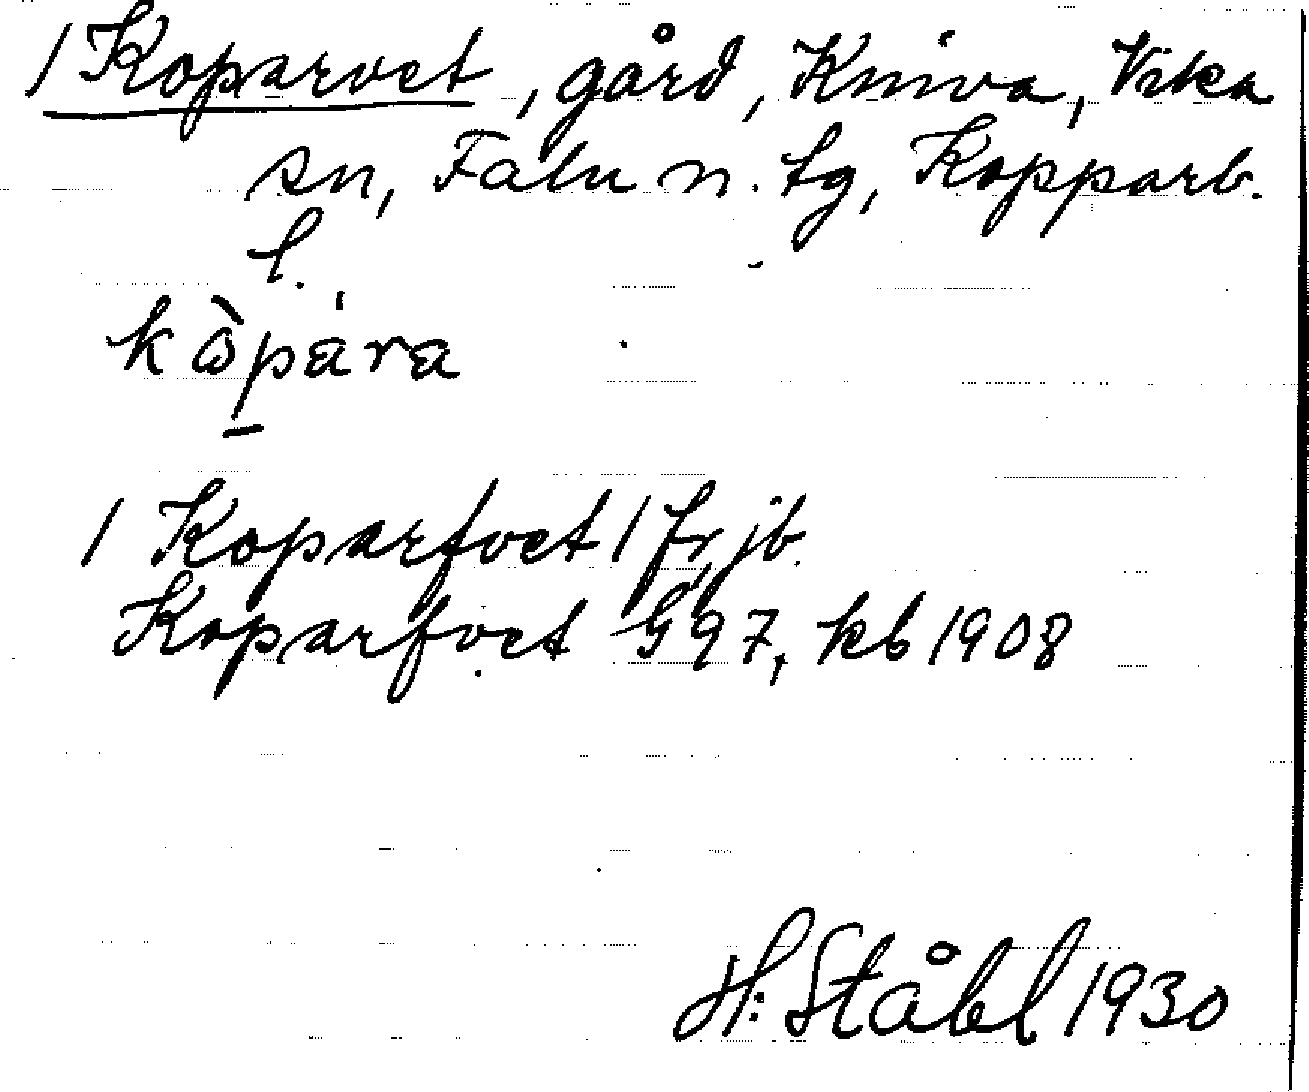 /Koparvet, gård, Kniva, Vika
sn, Falu n. tg, Kopparb.
l.
kòpára
/ Koparfvet / fr, jb.
Koparfvet G97, kb 1908
H. Ståhl 1930